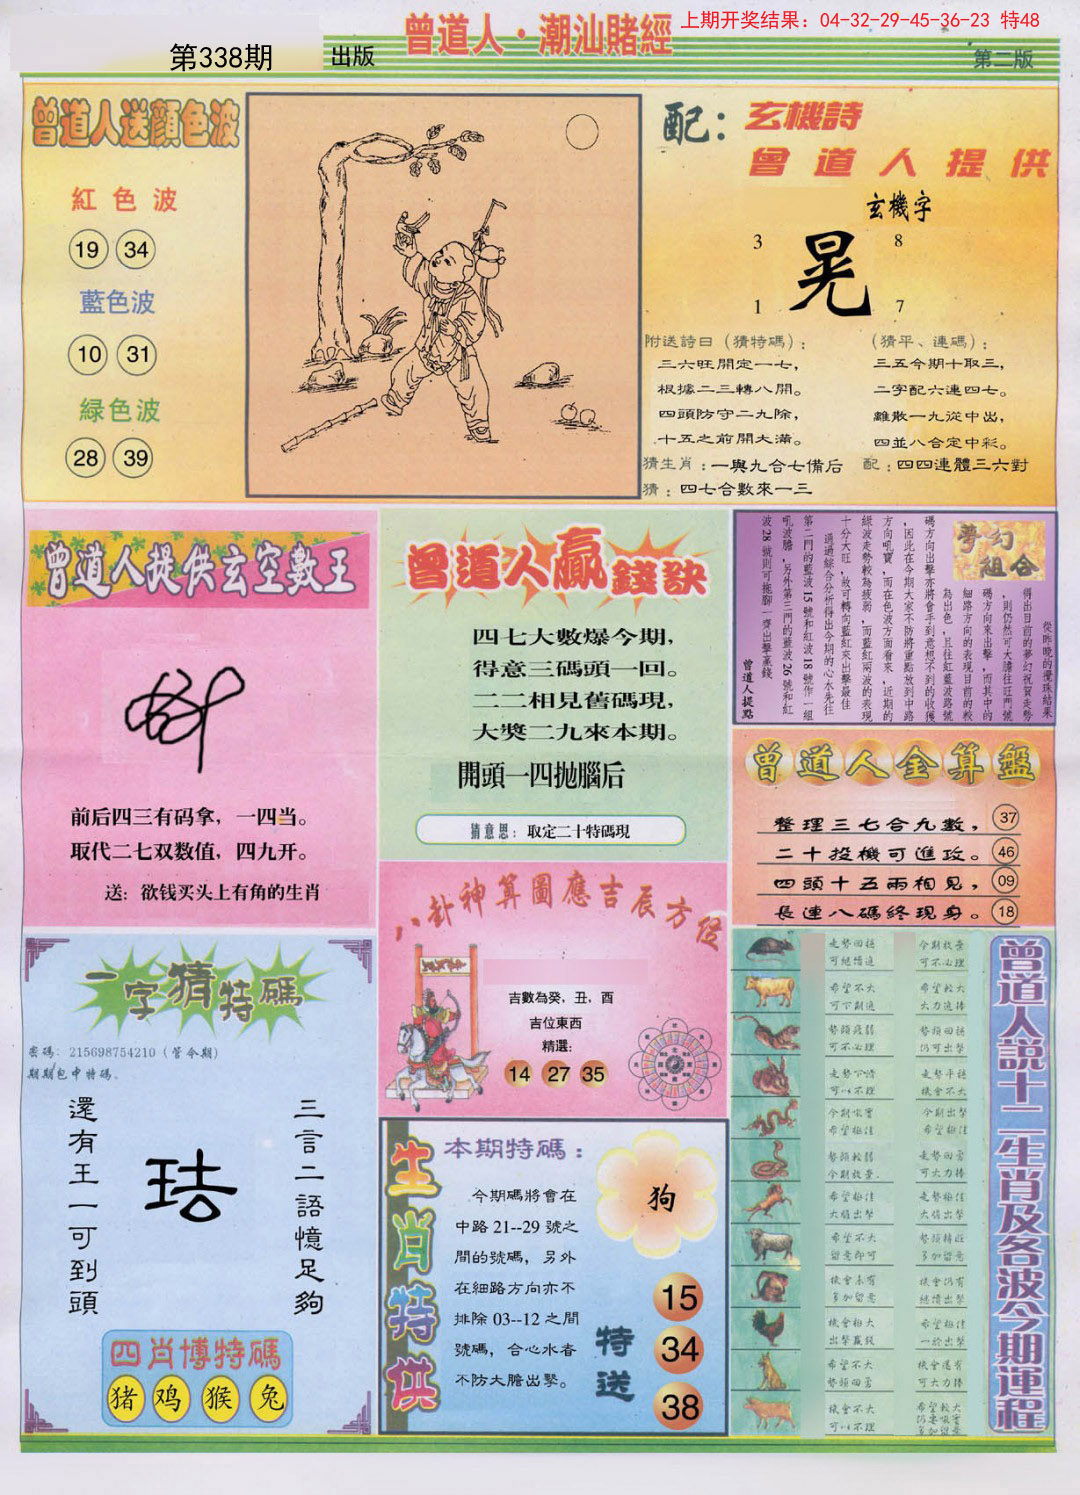 曾道人·潮汕賭經
上期开奖结果：04-32-29-45-36-23 特48
第338期
出版
第二版
曾道人送顔色波
紅色波
19 34
藍色波
10 31
緑色波
28 39
配：
玄機詩
曾道人提供
玄機字
3 8
晃
1 7
附送詩曰（猜特碼）：
三六旺開定一七，
根據二三轉八開。
四頭防守二九除，
十五之前開大滿。
（猜平、連碼）：
三五今期十取三，
二字配六連四七。
離散一九從中出，
四並八合定中彩。
猜生肖：一與九合七備后
配：四四連體三六對
猜：四七合數來一三
曾道人提供玄空數王
前后四三有码拿，一四当。
取代二七双数值，四九开。
送：欲钱买头上有角的生肖
曾道人贏錢訣
四七大數爆今期，
得意三碼頭一回。
二二相見舊碼現，
大獎二九來本期。
開頭一四拋腦后
猜意思：取定二十特碼現
夢幻組合
從昨晚的攪珠結果
得出目前的夢幻祝賀走勢
，則仍然可大膽往旺門號
碼方向來出擊，而其中的
細路方向的表現目前的較
為出色，且往紅藍波路號
碼方向出擊亦將會手到意想不到的收獲
，因此在今期大家不防將重點放到中路
方向吼寶，而在色波方面看來，近期的
綠波走勢較為疲弱，而藍紅兩波的表現
十分大旺，故可轉向藍紅來出擊最佳
通過綜合分析得出今期的心水先往
第二門的藍波15號和紅波18號作一組
吼波膽，另外第三門的藍波26號和紅
波28號則可拖腳一齊出擊贏錢
曾道人提點
曾道人金算盤
整理三七合九數， 37
二十投機可進攻。 46
四頭十五兩相見， 09
長連八碼終現身。 18
八卦神算圖應吉辰方位
吉數為癸，丑，酉
吉位東西
精選：
14 27 35
一字猜特碼
密碼：215698754210（管今期）
期期包中特碼。
還有王一可到頭
三言二語憶足夠
四肖博特碼
猪 鸡 猴 兔
生肖特供
本期特碼：
今期碼將會在
中路 21--29 號之
間的號碼，另外
在細路方向亦不
排除 03--12 之間
號碼，合心水者
不防大膽出擊。
狗
特送
15
34
38
曾道人說十二生肖及各波今期運程
走勢回穩
可繼續追
今期放棄
可不必理
希望不大
可下期追
希望較大
大力追捧
勢頭疲弱
可不必理
勢頭回穩
仍可出擊
走勢下滑
可以不理
走勢平穩
機會不大
今期吼實
希望極佳
今期出擊
希望極佳
勢頭較弱
今期放棄.
走勢回勇
可大力捧
希望極佳
大膽出擊
走勢極佳
大膽出擊
希望不大
留意即可
勢頭轉旺
多加留意
機會未有
多加留意
機會仍有
繼續出擊
機會極大
出擊贏錢
希望極佳
一於出擊
希望不大
勢頭回勇
機會還有
可大力捧
機會不大
可以不理
希望較大
仍要吼實
多加留意